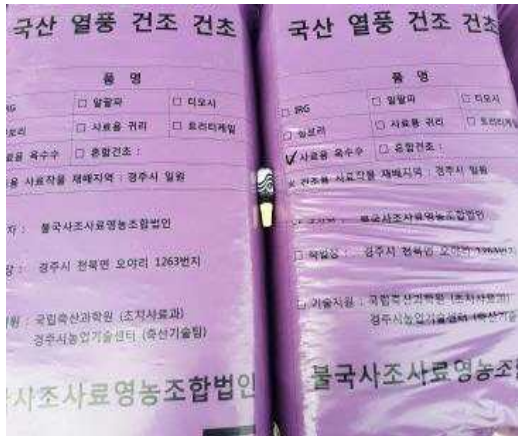 국산 열풍 건조 건초
품 명
IRG □ 알팔파 □ 티모시
보리 □ 사료용 귀리 □ 트리티케일
료용 옥수수 □ 혼합건조 :
용 사료작물 재배지역 : 경주시 일원
자 : 불국사조사료영농조합법인
장 : 경주시 천북면 오야리 1263번지
원 : 국립축산과학원 (초지사료과)
경주시농업기술센터 (축산기술팀)
사조사료영농조합법인
국산 열풍 건조 건초
품 명
□ IRG □ 알팔파 □ 티모시
□ 청보리 □ 사료용 귀리 □ 트리티케일
✓ 사료용 옥수수 □ 혼합건조 :
※ 건초용 사료작물 재배지역 : 경주시 일원
불국사조사료영농조합법인
□ 작업장 : 경주시 천북면 오야리 1263번지
□ 기술지원 : 국립축산과학원 (초지사료과)
경주시농업기술센터 (축산기술
불국사조사료영농조